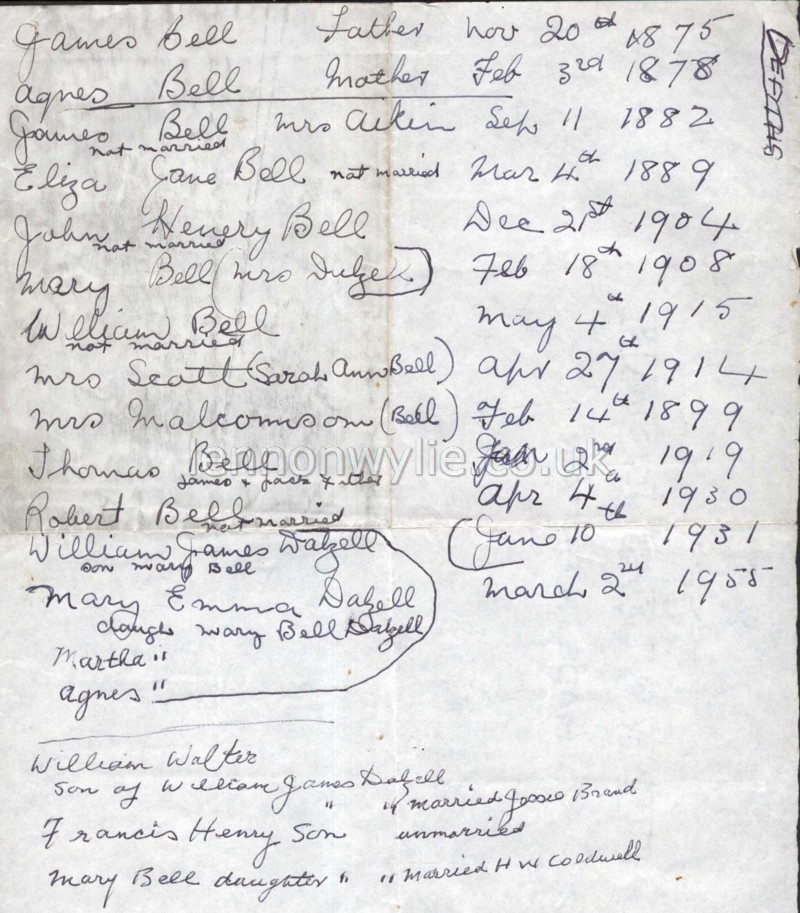 DEATHS
James Bell Father Nov 20th 1875
Agnes Bell Mother Feb 3rd 1878
James Bell Mrs Aikin Sep 11 1882
not married
Eliza Jane Bell not married Mar 4th 1889
John Henery Bell Dec 21st 1904
not married
Mary Bell (Mrs Dalzell) Feb 18th 1908
William Bell May 4th 1915
not married
Mrs Scott (Sarah Ann Bell) Apr 27th 1914
Mrs Malcomson (Bell) Feb 14th 1899
Thomas Bell Jan 2nd 1919
James & Jack &
lennonwylie.co.uk
Robert Bell Apr 4th 1930
not married
William James Dalzell (June 10th 1931
son Mary Bell
Mary Emma Dalzell March 2nd 1955
daugh Mary Bell Dalzell
Martha "
Agnes "
William Walter
son of William James Dalzell
" " married Jessie Brand
Francis Henry Son unmarried
Mary Bell daughter " " Married H W Coldwell